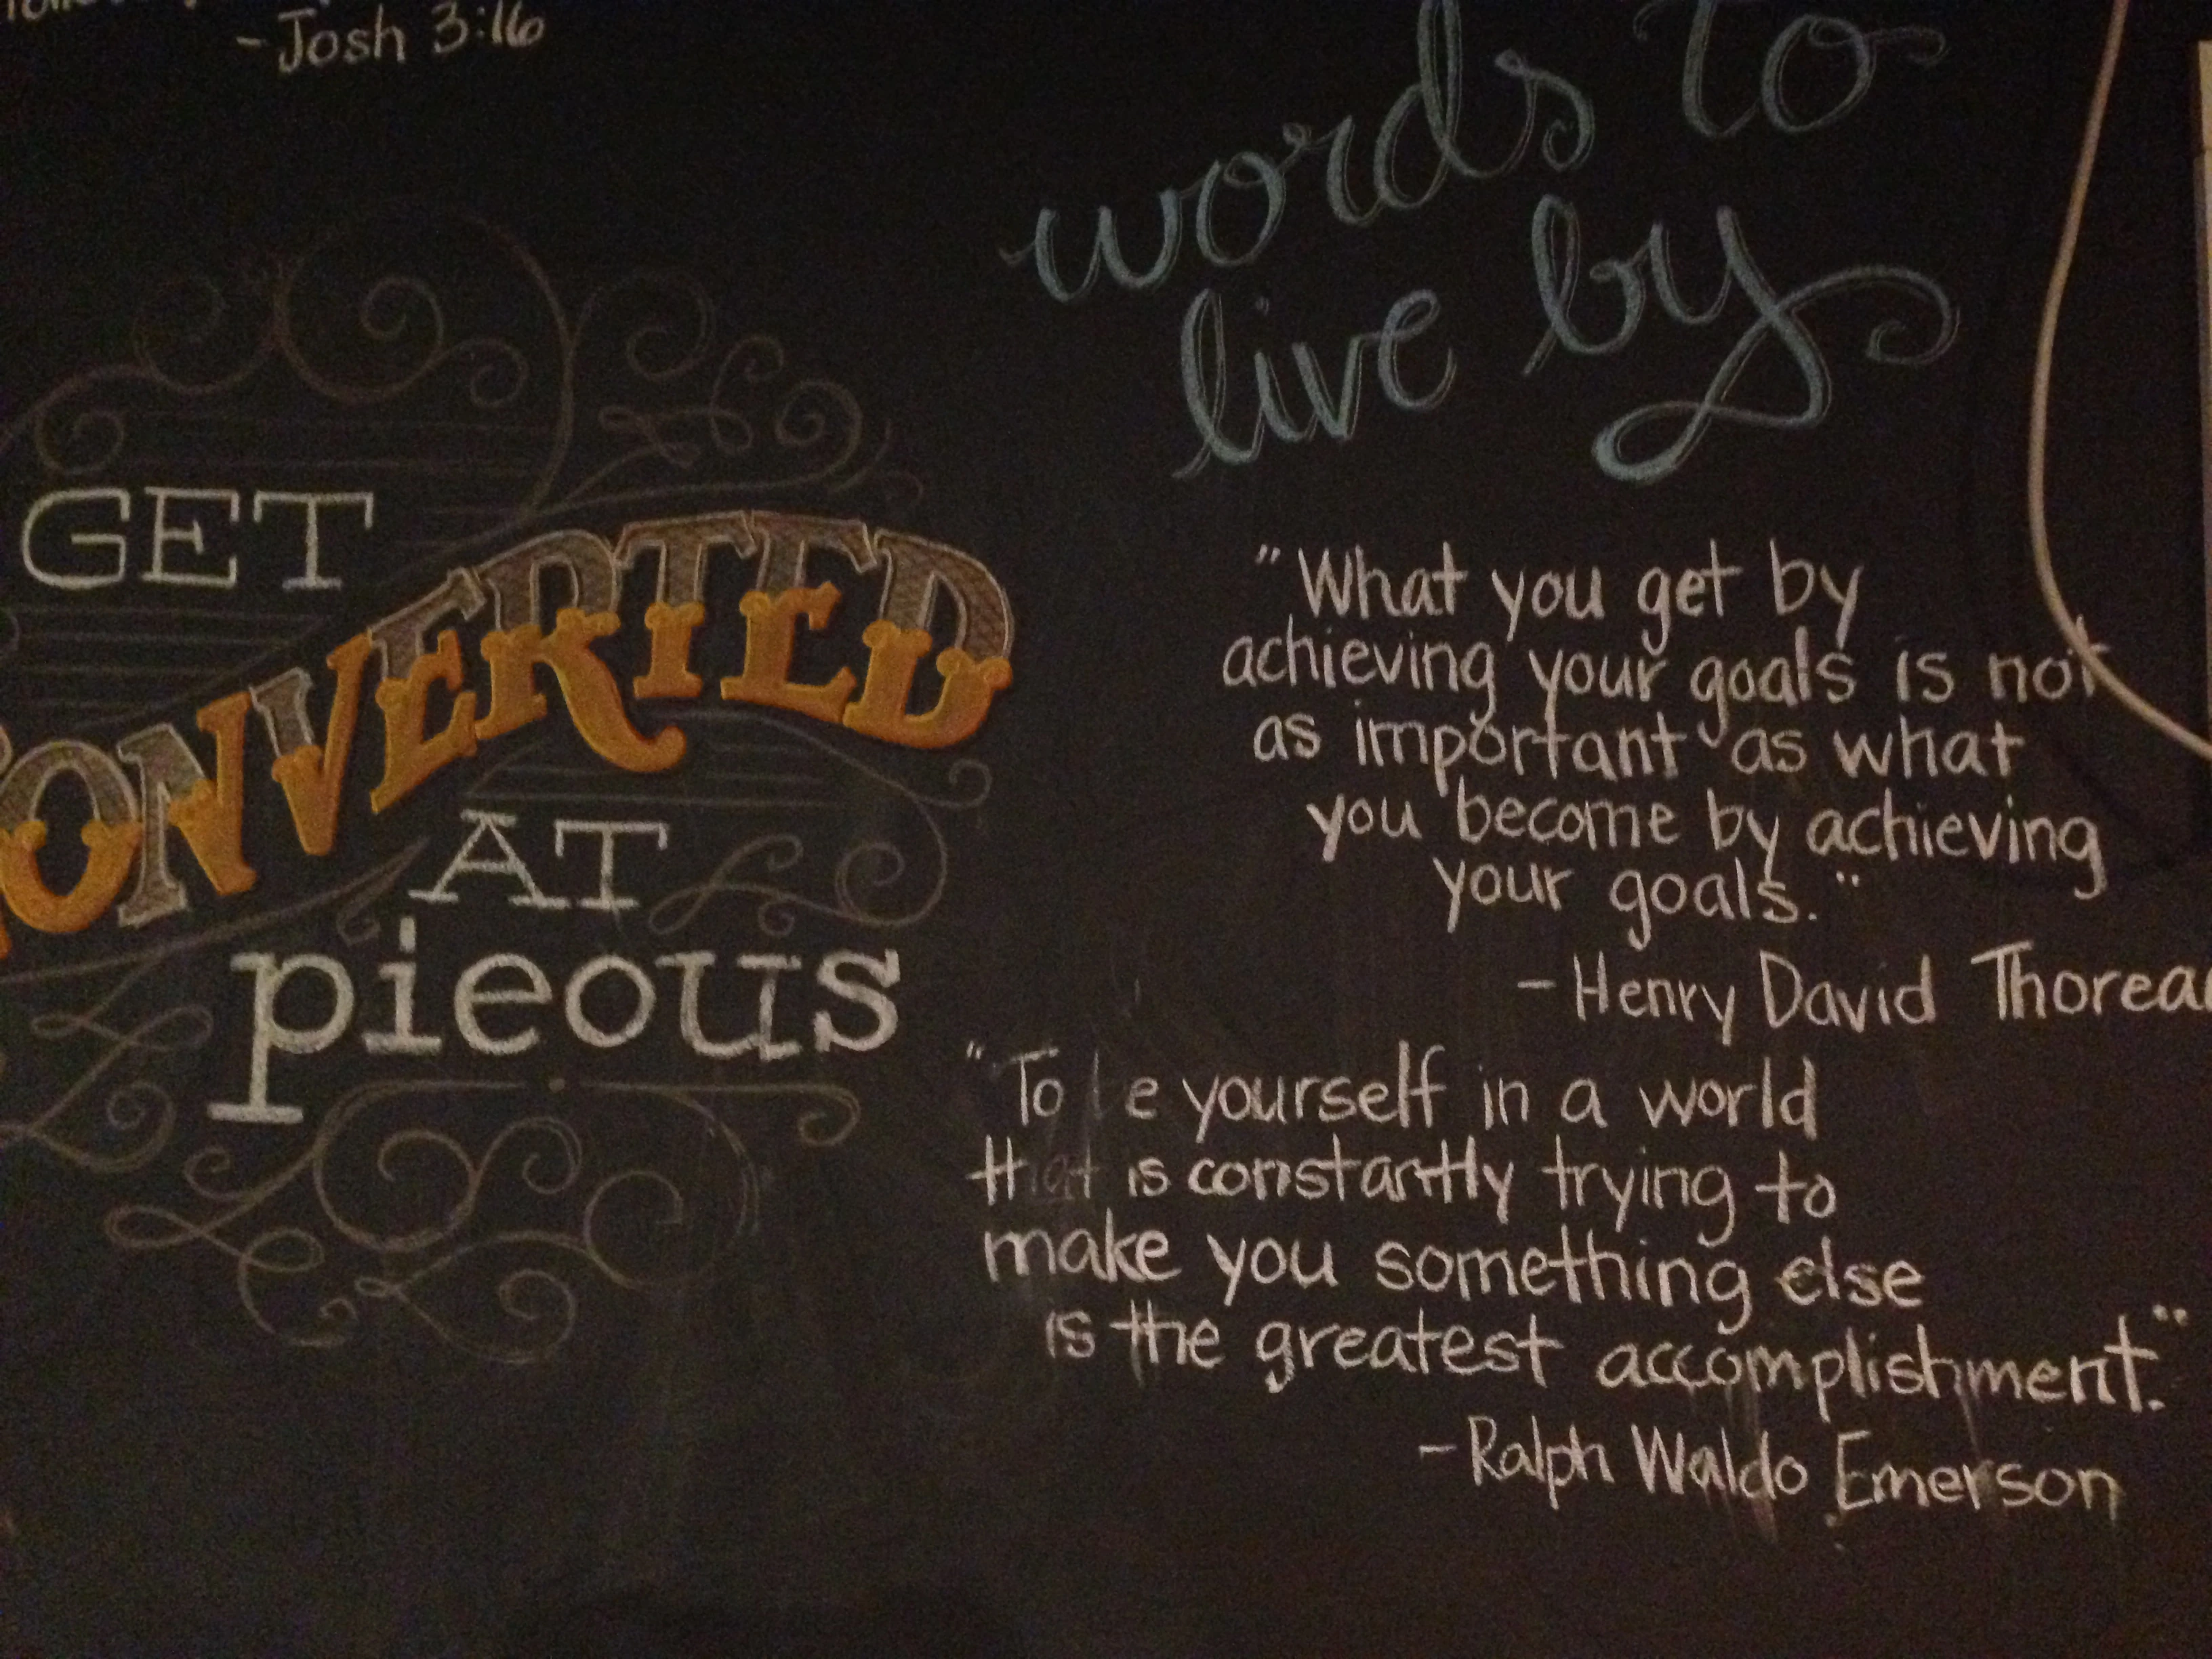 - Josh 3:16
GET
CONVERTED
AT
pieous
words to
live by
"What you get by
achieving your goals is not
as important as what
you become by achieving
your goals."
- Henry David Thorea
"To be yourself in a world
that is constantly trying to
make you something else
is the greatest accomplishment."
- Ralph Waldo Emerson